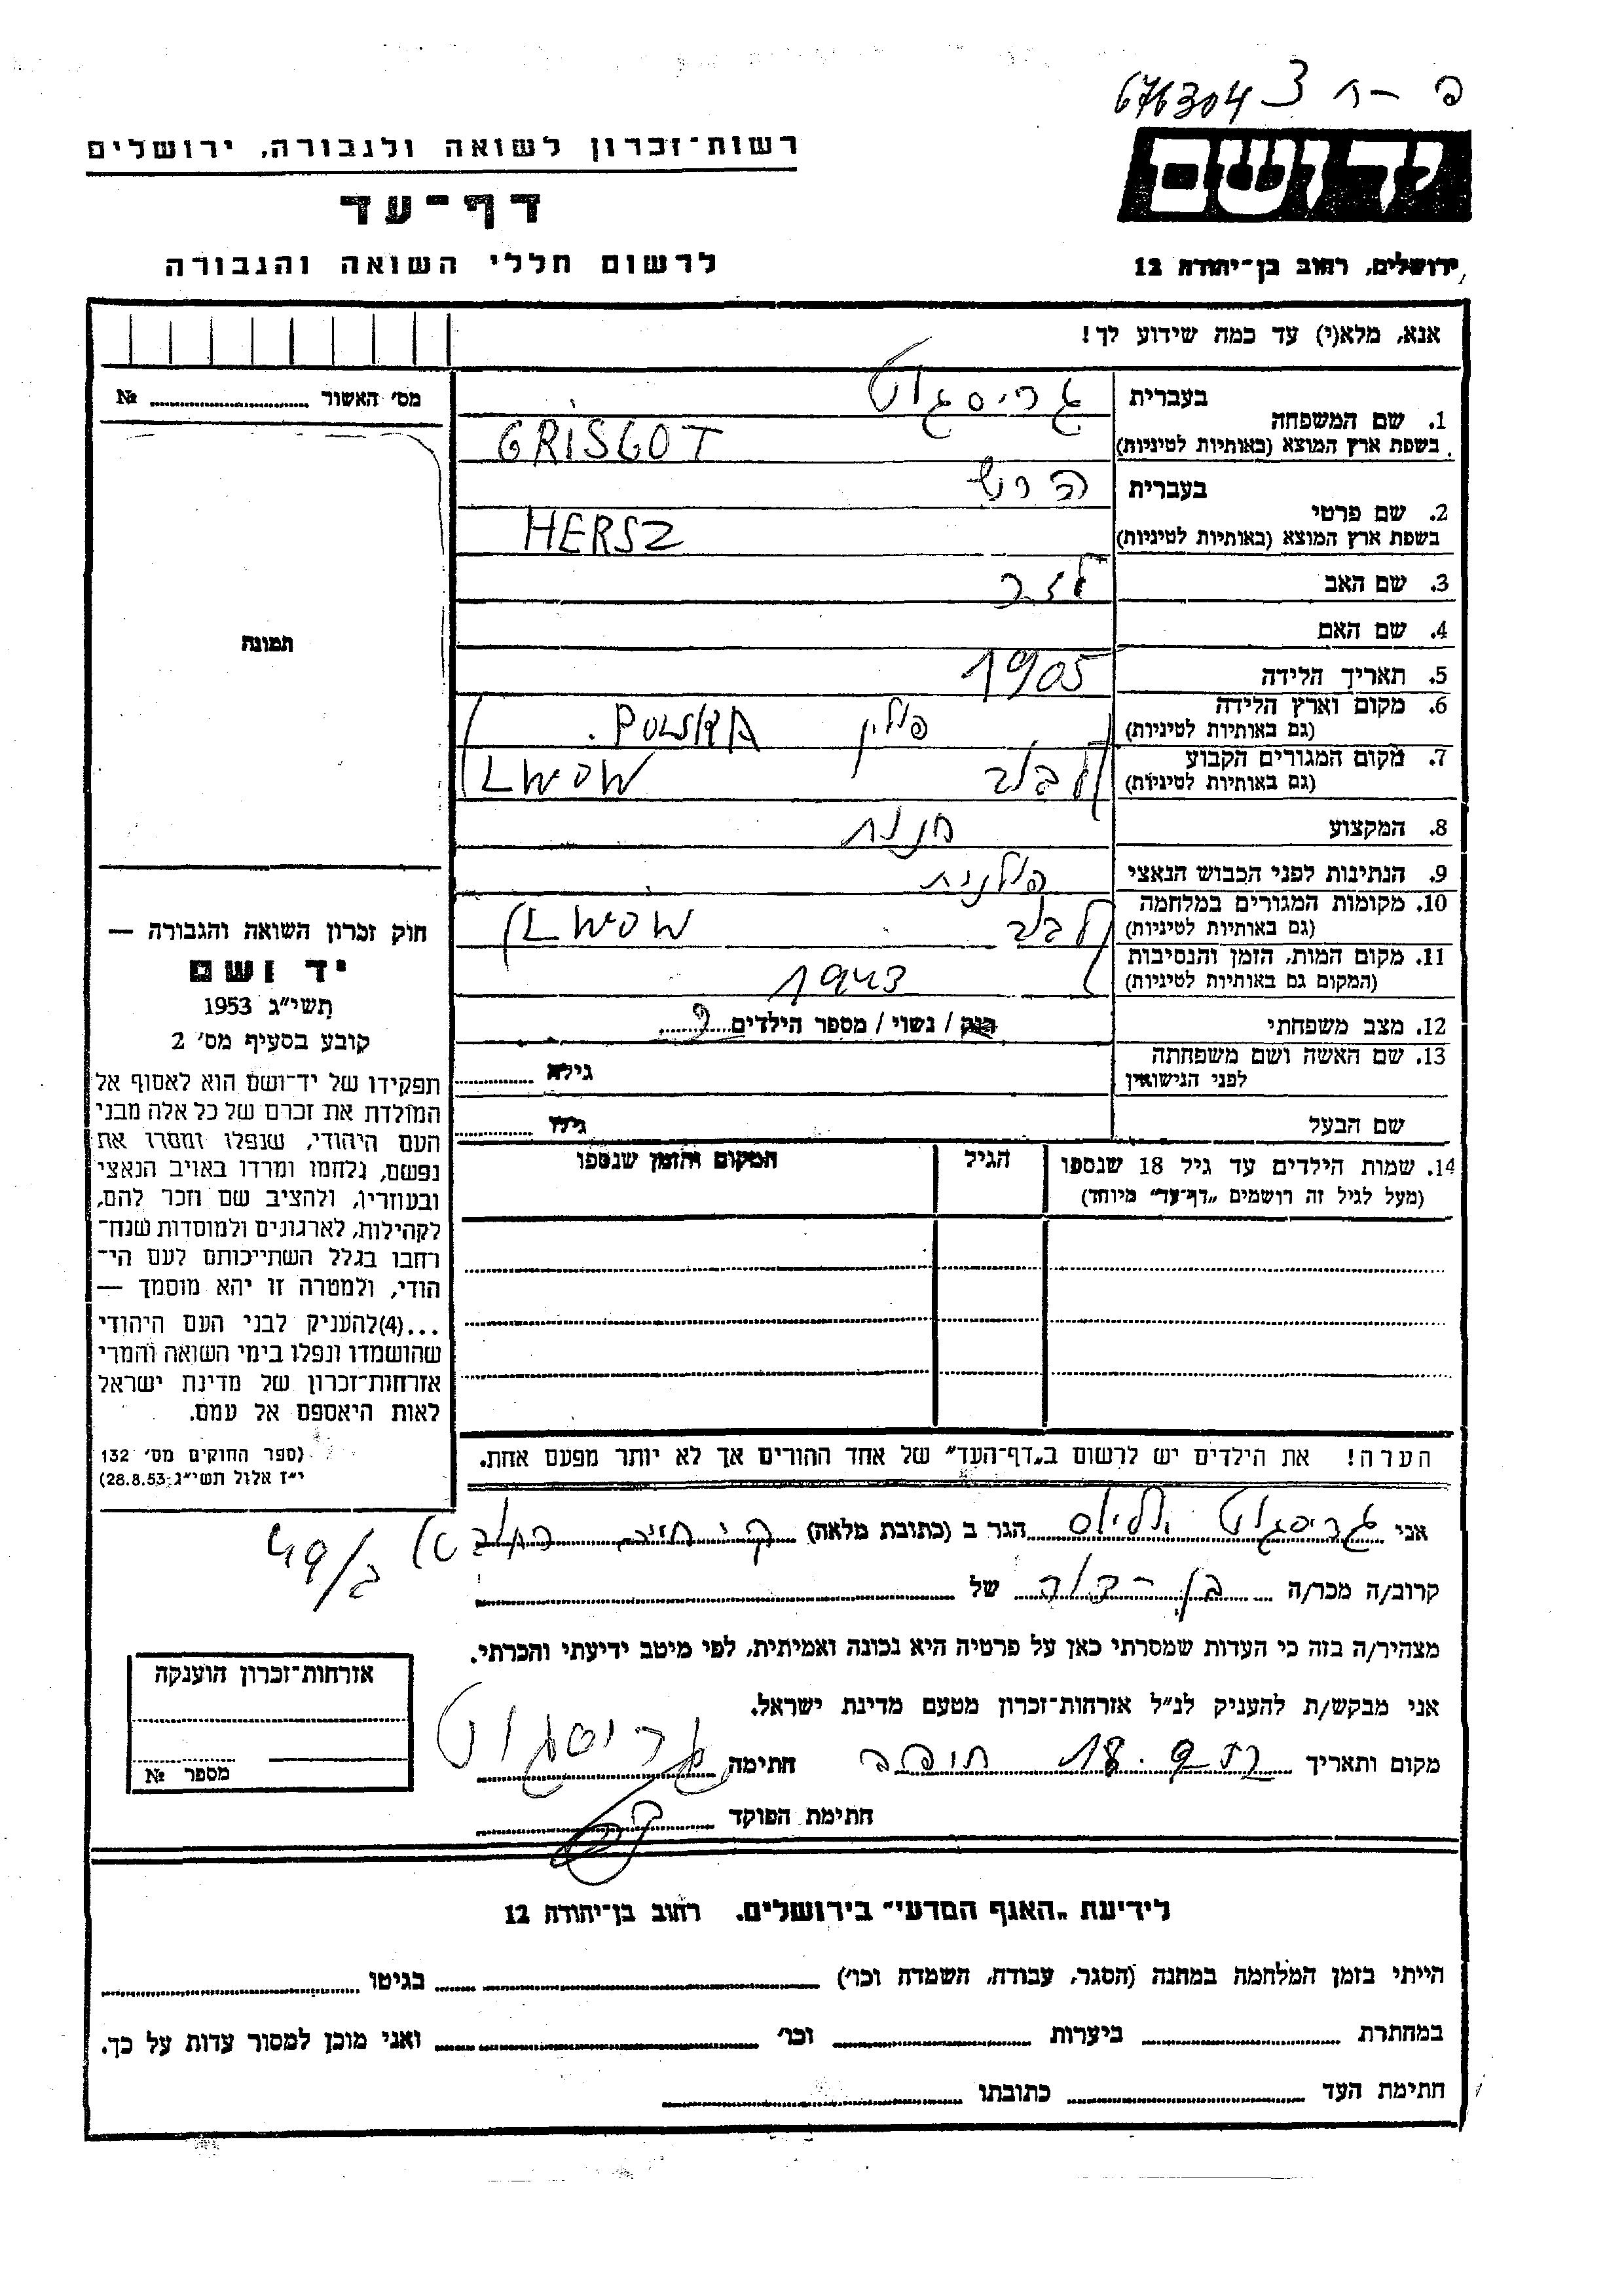 676304 3 ח - פ
יד ושם
רשות־זכרון לשואה ולגבורה, ירושלים
דף־עד
לרשום חללי השואה והגבורה
ירושלים, רחוב בן־יהודה 12
אנא, מלא(י) עד כמה שידוע לך!
מס׳ האשור № 
1. שם המשפחה
בעברית גריסגוט
בשפת ארץ המוצא (באותיות לטיניות) GRISGOT
2. שם פרטי
בעברית הרש
בשפת ארץ המוצא (באותיות לטיניות) HERSZ
3. שם האב לזר
4. שם האם
5. תאריך הלידה 1905
6. מקום וארץ הלידה
(גם באותיות לטיניות) פולין POLSKA.
7. מקום המגורים הקבוע
(גם באותיות לטיניות) לבוב LWOW
8. המקצוע
9. הנתינות לפני הכבוש הנאצי פולנית
10. מקומות המגורים במלחמה
(גם באותיות לטיניות) לבוב LWOW
11. מקום המות, הזמן והנסיבות
(המקום גם באותיות לטיניות) 1943
12. מצב משפחתי רוק / נשוי / מספר הילדים
13. שם האשה ושם משפחתה
לפני הנישואין גילה
שם הבעל גילו
14. שמות הילדים עד גיל 18 שנספו
(מעל לגיל זה רושמים „דף־עד״ מיוחד)
הגיל
המקום והזמן שנספו
תמונה
חוק זכרון השואה והגבורה —
יד ושם
תשי״ג 1953
קובע בסעיף מס׳ 2
תפקידו של יד־ושם הוא לאסוף אל
המולדת את זכרם של כל אלה מבני
העם היהודי, שנפלו ומסרו את
נפשם, נלחמו ומרדו באויב הנאצי
ובעוזריו, ולהציב שם וזכר להם,
לקהילות, לארגונים ולמוסדות שנח־
רחבו בגלל השתייכותם לעם הי־
הודי, ולמטרה זו יהא מוסמך —
...(4)להעניק לבני העם היהודי
שהושמדו ונפלו בימי השואה והמרי
אזרחות־זכרון של מדינת ישראל
לאות היאספם אל עמם.
(ספר החוקים מס׳ 132
י״ז אלול תשי״ג 28.8.53)
הערה! את הילדים יש לרשום ב„דף־העד״ של אחד ההורים אך לא יותר מפעם אחת.
אני גריסגוט הגר ב (כתובת מלאה) ק׳ חיים 49/ב
קרוב/ה מכר/ה בן-דודה של
מצהיר/ה בזה כי העדות שמסרתי כאן על פרטיה היא נכונה ואמיתית, לפי מיטב ידיעתי והכרתי.
אני מבקש/ת להעניק לנ״ל אזרחות־זכרון מטעם מדינת ישראל.
מקום ותאריך 18. חתימה גריסגוט
חתימת הפוקד
אזרחות־זכרון הוענקה
מספר №
לידיעת „האגף המדעי״ בירושלים, רחוב בן־יהודה 12
הייתי בזמן המלחמה במחנה (הסגר, עבודה, השמדה וכו׳) בגיטו
במחתרת ביערות וכו׳ ואני מוכן למסור עדות על כך.
חתימת העד כתובתו